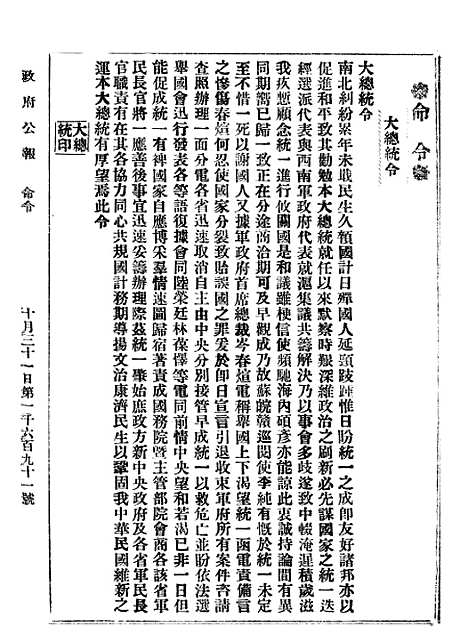 命令
大總統令
大總統令
南北糾紛累年未戢民生久領國計日殫國人延頸跂踵惟日盼統一之成卽友好諸邦亦以
促進和平致其勸勉本大總統就任以來默察時艱深維政治之刷新必先謀國家之統一迭
經選派代表與西南軍政府代表就滬集議共籌解決乃以事會多歧遂致中輟淹遲積歲滋
我疚慙顧念統一進行攸關國是和議雖梗信使頻馳海內碩彥亦能諒此衷誠持論間有異
同期嚮已歸一致正在分途商洽期可及早觀成乃故蘇皖贛巡閱使李純有慨於統一未定
至不惜一死以謝國人又據軍政府首席總裁岑春煊電稱舉國上下渴望統一函電責備言
之慘傷春煊何忍使國家分裂致貽誤國之罪爰於卽日宣言引退收束軍府所有案件咨請
查照辦理一面分電各省迅速取消自主由中央分別接管早成統一以救危亡並盼依法選
舉國會迅行發表各等語復據會同陸榮廷林葆懌等電同前情中央望和若渴已非一日但
能促成統一有裨國家自應博采羣情速圖歸宿著責成國務院暨主管部院會商各該省軍
民長官將一應善後事宜迅速妥籌辦理際茲統一肇始庶政方新中央政府及各省軍民長
官職責有在其各協力同心共規國計務期導揚文治康濟民生以鞏固我中華民國維新之
運本大總統有厚望焉此令
大總統印
政府公報 命令 十月三十一日第一千六百九十一號